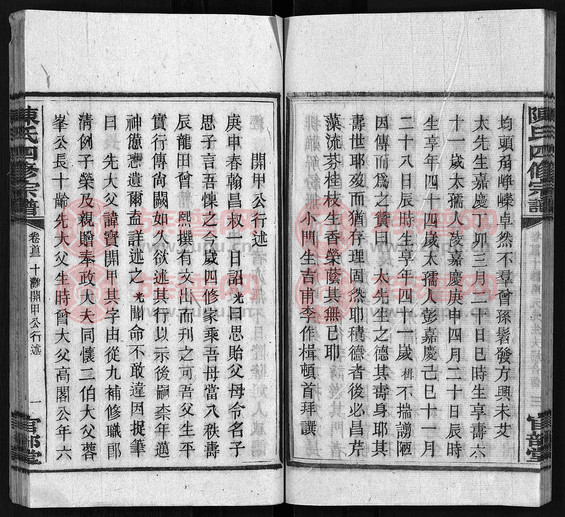 均頭角崢嶸卓然不羣曾孫髫發方興未艾
太先生嘉慶丁卯三月二十日巳時生享壽六
十一歲太孺人凌嘉慶庚申四月二十日辰時
生享年四十四歲太孺人彭嘉慶己巳十一月
二十八日辰時生享年四十一歲楫不揣謭陋
因傳而爲之贊曰 太先生之德其壽身耶其
壽世耶歿而猶存理固然耶積德者後必昌芹
藻流芬桂枝生香榮蔭其無旣
小門生吉甫李作楫頓首拜譔
陳氏四修宗譜
官部堂
開甲公行述
庚申春翰昌叔 日詔 光曰思貽父母令名子
思子言吾悚之今歲四修家乘吾母當八秩壽
辰龍田曾 熙撰有文出而刊之可吾父生平
實行傳尙闕如久欲述其行以示後嗣柰年邁
神憊懑遺爾盍詳述之 光聞命不敢違因捉筆
曰 先大父諱寶開甲其字由從九補修職郞
淸例子榮及親贈奉政大夫同懷三伯大父蓉
峯公長十齡先大父生時曾大父高閣公年六
陳氏四修宗譜
卷首 十 開甲公行述
一
官部堂